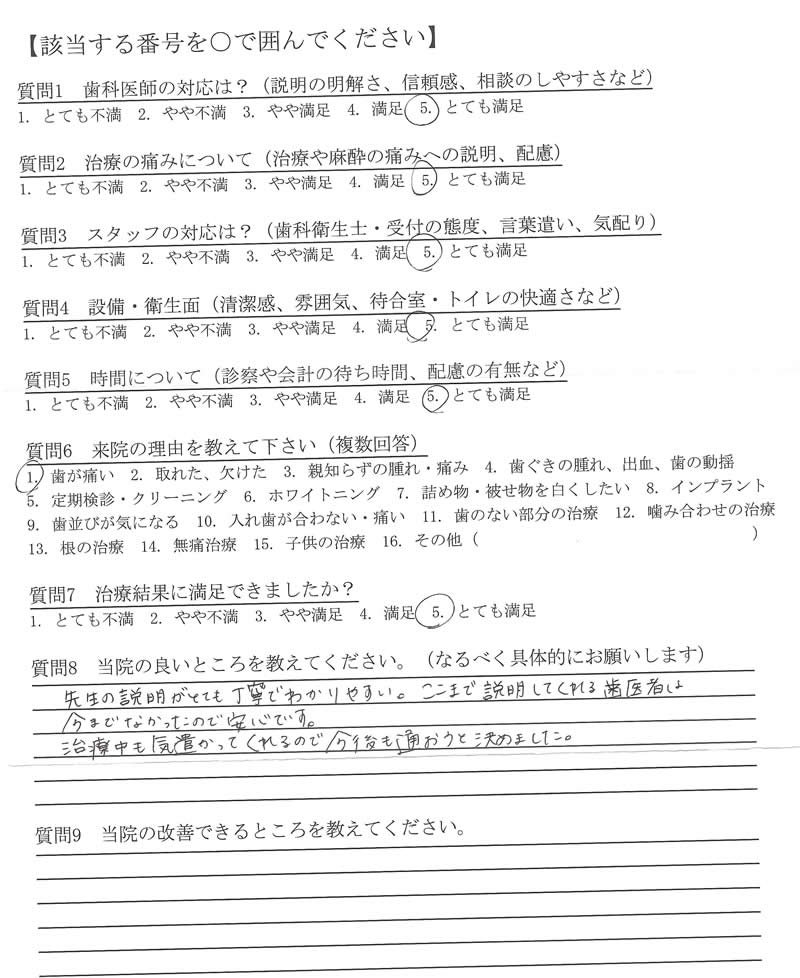 【該当する番号を〇で囲んでください】
質問1　歯科医師の対応は？（説明の明解さ、信頼感、相談のしやすさなど）
1. とても不満　2. やや不満　3. やや満足　4. 満足　5. とても満足
質問2　治療の痛みについて（治療や麻酔の痛みへの説明、配慮）
1. とても不満　2. やや不満　3. やや満足　4. 満足　5. とても満足
質問3　スタッフの対応は？（歯科衛生士・受付の態度、言葉遣い、気配り）
1. とても不満　2. やや不満　3. やや満足　4. 満足　5. とても満足
質問4　設備・衛生面（清潔感、雰囲気、待合室・トイレの快適さなど）
1. とても不満　2. やや不満　3. やや満足　4. 満足　5. とても満足
質問5　時間について（診察や会計の待ち時間、配慮の有無など）
1. とても不満　2. やや不満　3. やや満足　4. 満足　5. とても満足
質問6　来院の理由を教えて下さい（複数回答）
1. 歯が痛い　2. 取れた、欠けた　3. 親知らずの腫れ・痛み　4. 歯ぐきの腫れ、出血、歯の動揺
5. 定期検診・クリーニング　6. ホワイトニング　7. 詰め物・被せ物を白くしたい　8. インプラント
9. 歯並びが気になる　10. 入れ歯が合わない・痛い　11. 歯のない部分の治療　12. 噛み合わせの治療
13. 根の治療　14. 無痛治療　15. 子供の治療　16. その他（　　　　　　　　　　）
質問7　治療結果に満足できましたか？
1. とても不満　2. やや不満　3. やや満足　4. 満足　5. とても満足
質問8　当院の良いところを教えてください。（なるべく具体的にお願いします）
先生の説明がとても丁寧でわかりやすい。ここまで説明してくれる歯医者は
今までなかったので安心です。
治療中も気遣かってくれるので今後も通おうと決めました。
質問9　当院の改善できるところを教えてください。